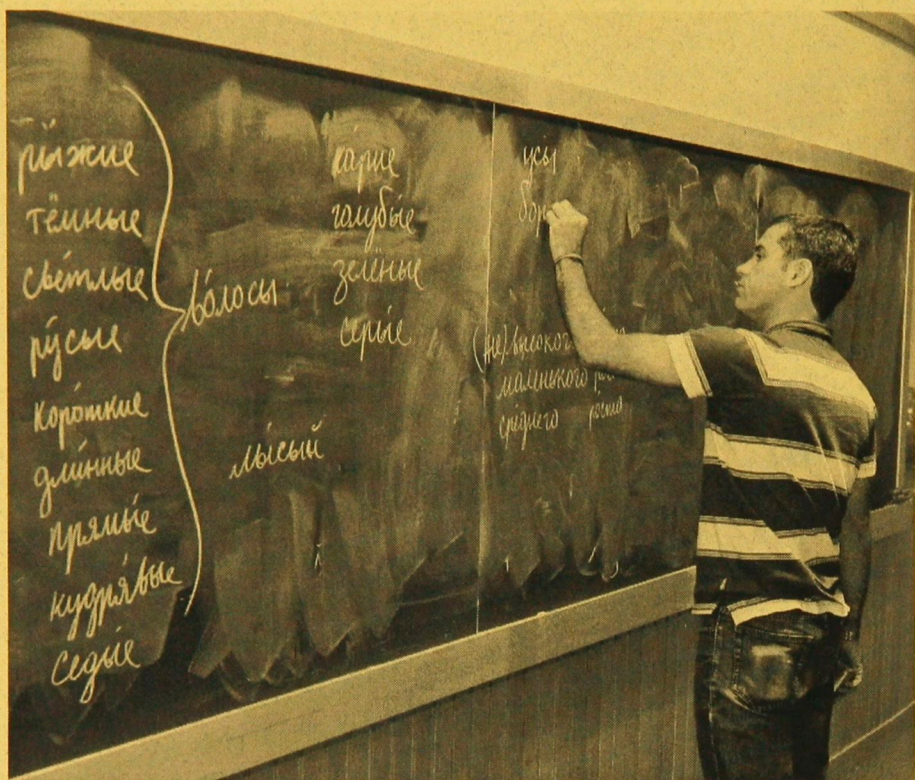 ры́жие
тёмные
све́тлые
ру́сые
коро́ткие
дли́нные
прямы́е
кудря́вые
седы́е
во́лосы
лы́сый
ка́рие
голубы́е
зелёные
се́рые
усы́
(не)высокого
маленького
среднего роста